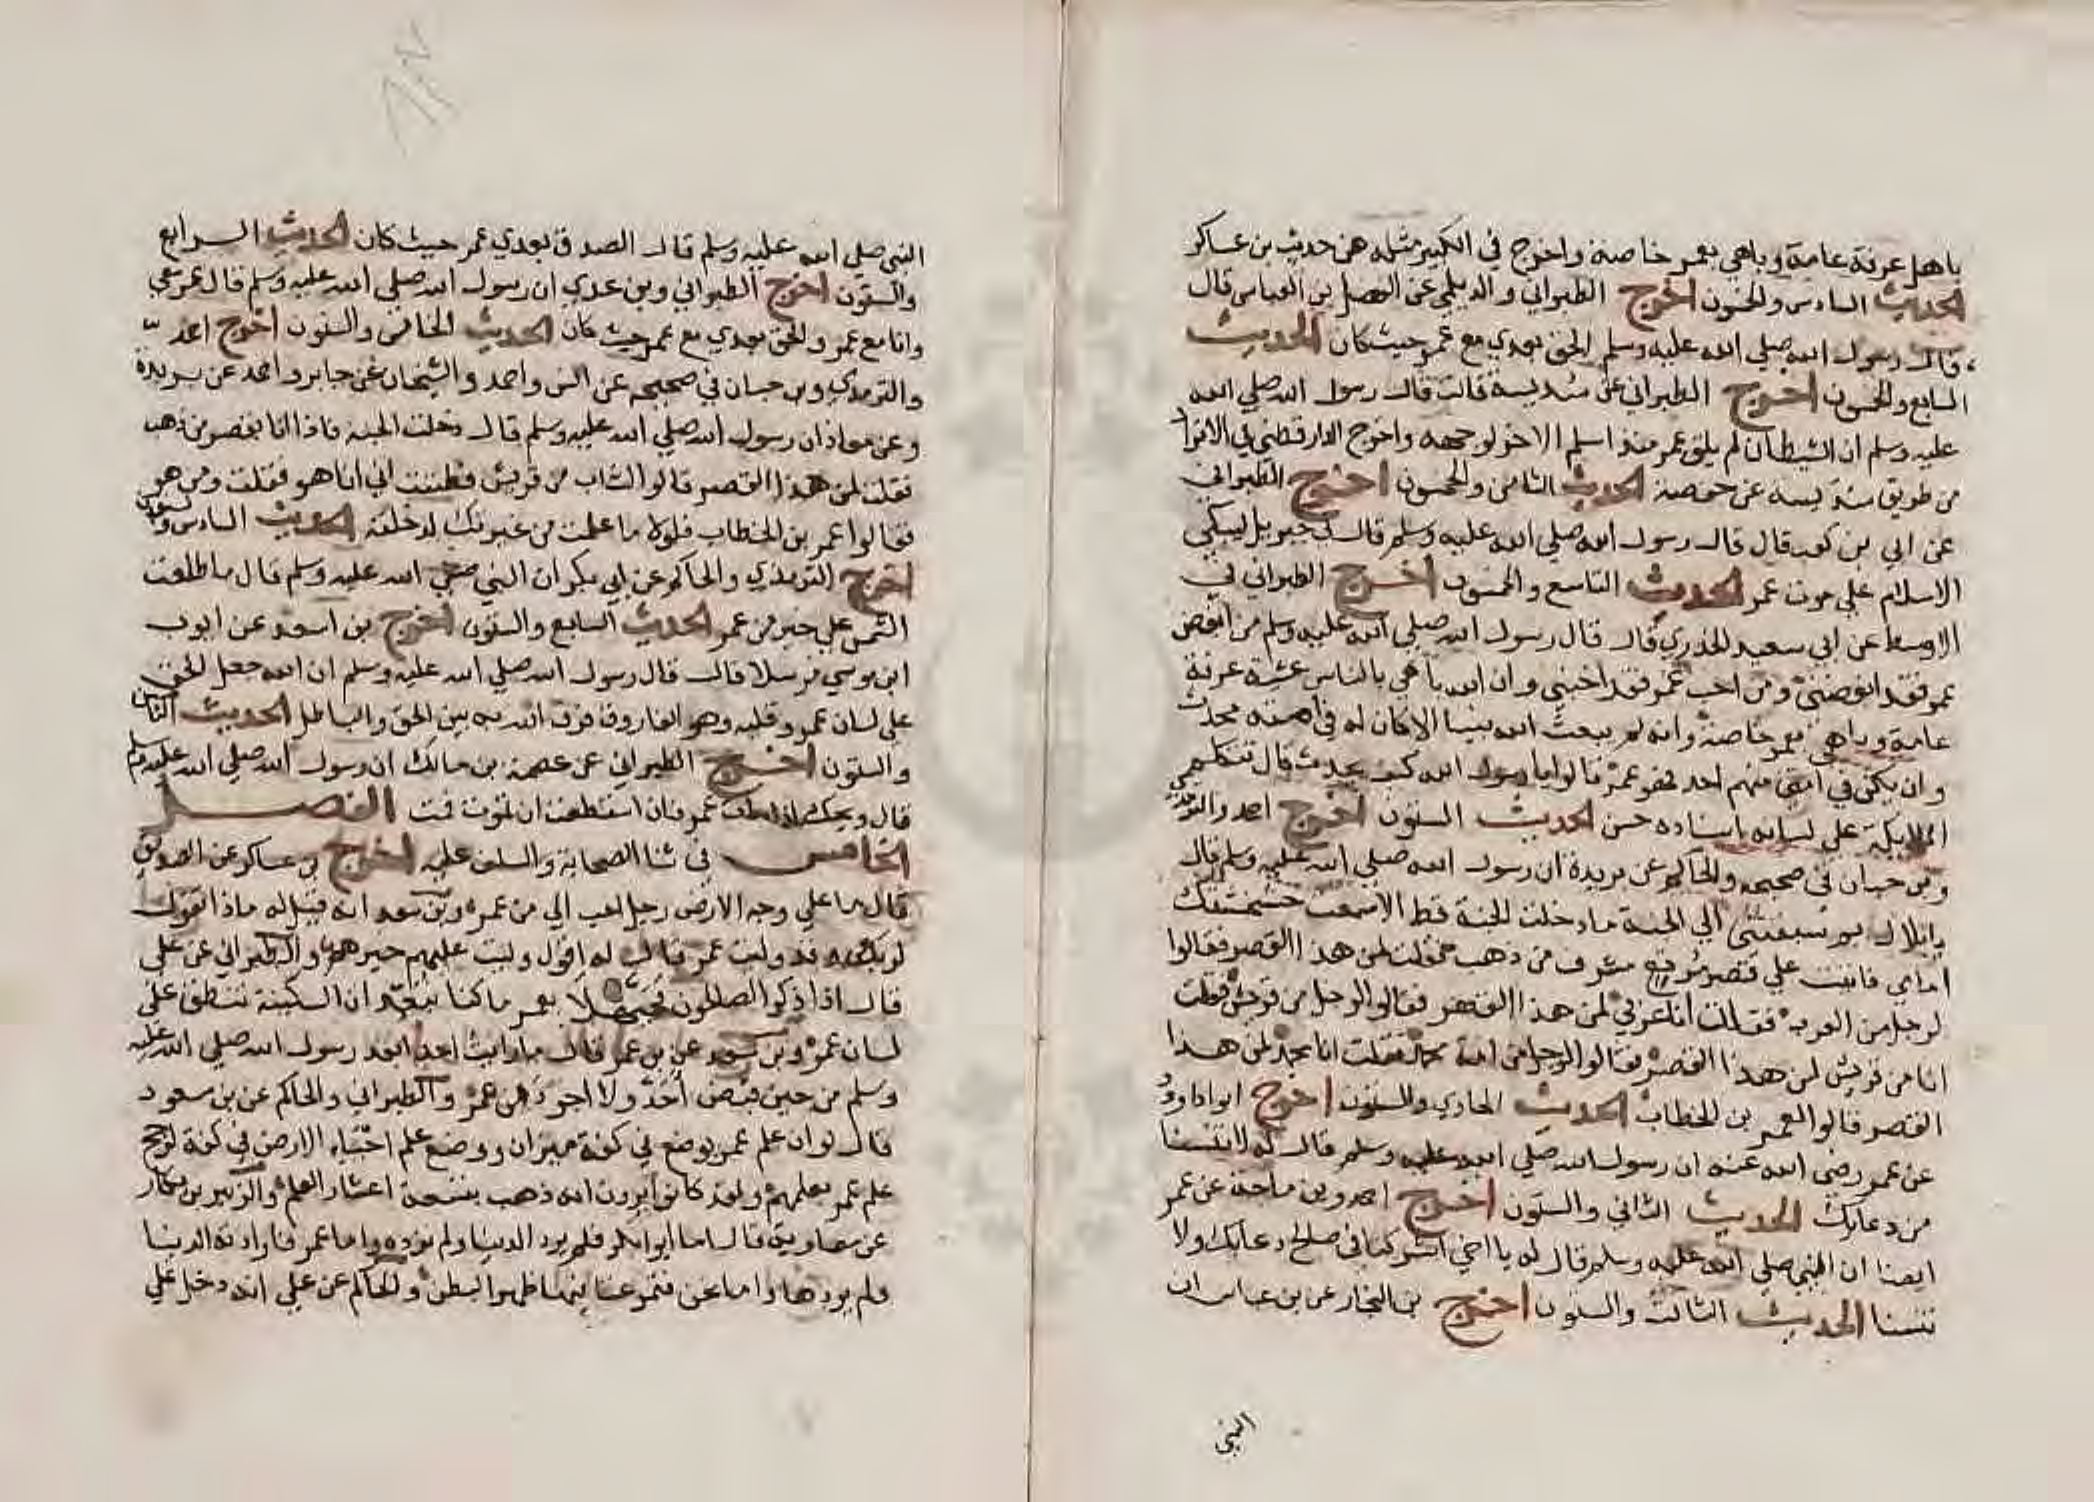 باهل عرفة عامة وباهي بعمر خاصة واخرج في الكبير مثله من حديث بن عساكر
الحديث السادس والخمسون اخرج الطبراني والديلمي عن الفضل بن العباس قال
قال رسول الله صلي الله عليه وسلم الحق بعدي مع عمر حيث كان الحديث
السابع والخمسون اخرج الطبراني عن سديسة قالت قال رسول الله صلي الله
عليه وسلم ان الشيطان لم يلق عمر منذ اسلم الا خر لوجهه واخرج الدارقطني في الافراد
من طريق سديسه عن حفصة الحديث الثامن والخمسون اخرج الطبراني
عن ابي بن كعب قال قال رسول الله صلي الله عليه وسلم قال لي جبريل ليبكي
الاسلام علي موت عمر الحديث التاسع والخمسون اخرج الطبراني في
الاوسط عن ابي سعيد الخدري قال قال رسول الله صلي الله عليه وسلم من ابغض
عمر فقد ابغضني ومن احب عمر فقد احبني وان الله باهي بالناس عشية عرفة
عامة وباهي بعمر خاصة وانه لم يبعث الله نبيا الا كان له في امته محدث
وان يكن في امتي منهم احد فهو عمر قالوا يا رسول الله كيف يحدث قال تتكلم
الملايكة علي لسانه اسناده حسن الحديث الستون اخرج احمد والترمذي
وبن حبان في صحيحه والحاكم عن بريدة ان رسول الله صلي الله عليه وسلم قال
يا بلال بم سبقتني الي الجنة ما دخلت الجنة قط الا سمعت خشخشتك
امامي فاتيت علي قصر مربع مشرف من ذهب فقلت لمن هذا القصر فقالوا
لرجل من العرب فقلت انا عربي لمن هذا القصر فقالوا لرجل من قريش فقلت
انا من قريش لمن هذا القصر فقالوا لرجل من امة محمد فقلت انا محمد لمن هذا
القصر قالوا لعمر بن الخطاب الحديث الحادي والستون اخرج ابوا داوود
عن عمر رضي الله عنه ان رسول الله صلي الله عليه وسلم قال له لا تنسنا
من دعايك الحديث الثاني والستون اخرج احمد وبن ماجة عن عمر
ايضا ان النبي صلي الله عليه وسلم قال له يا اخي اشركنا في صالح دعايك ولا
تنسنا الحديث الثالث والستون اخرج بن النجار عن بن عباس ان
النبي
النبي صلي الله عليه وسلم قال الصدق بعدي عمر حيث كان الحديث الرابع
والستون اخرج الطبراني وبن عدي ان رسول الله صلي الله عليه وسلم قال عمر معي
وانا مع عمر والحق بعدي مع عمر حيث كان الحديث الخامس والستون اخرج احمد
والترمذي وبن حبان في صحيحه عن انس واحمد والشيخان عن جابر واحمد عن بريدة
وعن معاذ ان رسول الله صلي الله عليه وسلم قال دخلت الجنة فاذا انا بقصر من ذهب
فقلت لمن هذا القصر قالوا لشاب من قريش فظننت اني انا هو فقلت ومن هو
فقالوا عمر بن الخطاب فلولا ما علمت من غيرتك لدخلته الحديث السادس والستون
اخرج الترمذي والحاكم عن ابي بكر ان النبي صلي الله عليه وسلم قال ما طلعت
الشمس علي خير من عمر الحديث السابع والستون اخرج بن اسعد عن ايوب
ابن موسي مرسلا قال قال رسول الله صلي الله عليه وسلم ان الله جعل الحق
علي لسان عمر وقلبه وهو الفاروق فرق الله به بين الحق والباطل الحديث الثامن
والستون اخرج الطبراني عن عصمة بن مالك ان رسول الله صلي الله عليه وسلم
قال ويحك اذا مات عمر فان استطعت ان تموت فمت الفصل
الخامس في ثنا الصحابة والسلف عليه اخرج بن عساكر عن الصديق
قال ما علي وجه الارض رجل احب الي من عمر وبن سعد انه قيل له ماذا تقول
لربك وقد وليت عمر قال له اقول وليت عليهم خيرهم والطبراني عن علي
قال اذا ذكر الصالحون فحي هلا بعمر ما كنا نبعد ان السكينة تنطق علي
لسان عمر وبن سعد عن بن عمر قال ما رايت احدا بعد رسول الله صلي الله عليه
وسلم من حين قبض أحد ولا اجود من عمر والطبراني والحاكم عن بن مسعود
قال لو ان علم عمر يوضع في كفة ميزان ووضع علم احياء الارض في كفة لرجح
علم عمر بعلمهم ولقد كانوا يرون انه ذهب بتسعة اعشار العلم والزبير بن بكار
عن معاوية قال اما ابوا بكر فلم يرد الدنيا ولم ترده واما عمر فارادته الدنيا
ولم يردها واما نحن فتمرغنا فيها ظهرا لبطن والحاكم عن علي انه دخل علي